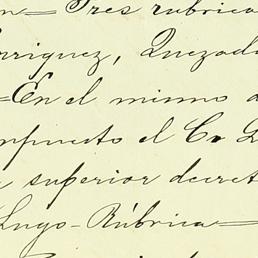 n= Tres rubrica
rriguez, Quezad
=En el mismo d
mpuesto el C.
superior decret
Lugo-Rúbrica=